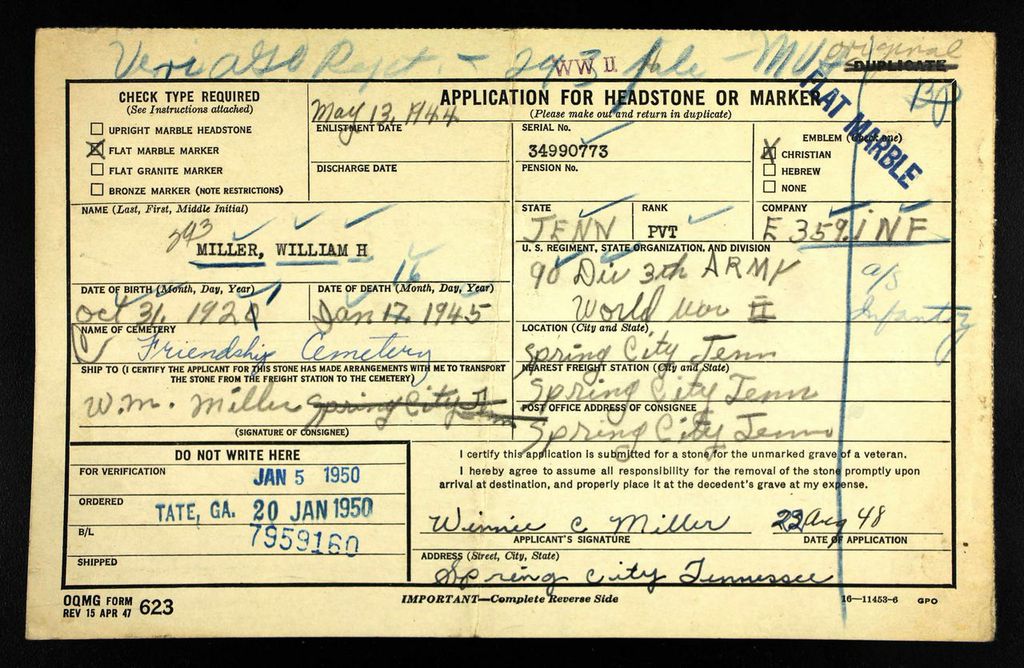 Veri AGO Rept. - 293 file -
WW II
original
DUPLICATE
CHECK TYPE REQUIRED
(See Instructions attached)
UPRIGHT MARBLE HEADSTONE
X FLAT MARBLE MARKER
FLAT GRANITE MARKER
BRONZE MARKER (NOTE RESTRICTIONS)
May 13, 1944
ENLISTMENT DATE
DISCHARGE DATE
APPLICATION FOR HEADSTONE OR MARKER
(Please make out and return in duplicate)
SERIAL No.
34990773
PENSION No.
EMBLEM (Check one)
X CHRISTIAN
HEBREW
NONE
FLAT MARBLE
NAME (Last, First, Middle Initial)
293
MILLER, WILLIAM H
STATE
TENN
RANK
PVT
COMPANY
E 359. INF
U. S. REGIMENT, STATE ORGANIZATION, AND DIVISION
90 Div 3th ARMY
World War II
a/s
Infantry
16
DATE OF BIRTH (Month, Day, Year)
Oct 31, 1920
DATE OF DEATH (Month, Day, Year)
Jan 17 1945
NAME OF CEMETERY
Friendship Cemetery
LOCATION (City and State)
Spring City Tenn
SHIP TO (I CERTIFY THE APPLICANT FOR THIS STONE HAS MADE ARRANGEMENTS WITH ME TO TRANSPORT
THE STONE FROM THE FREIGHT STATION TO THE CEMETERY)
W.m. Miller Spring City Tenn
(SIGNATURE OF CONSIGNEE)
NEAREST FREIGHT STATION (City and State)
Spring City Tenn
POST OFFICE ADDRESS OF CONSIGNEE
Spring City Tenn
DO NOT WRITE HERE
FOR VERIFICATION
JAN 5 1950
ORDERED
TATE, GA. 20 JAN 1950
B/L
7959160
SHIPPED
I certify this application is submitted for a stone for the unmarked grave of a veteran.
I hereby agree to assume all responsibility for the removal of the stone promptly upon
arrival at destination, and properly place it at the decedent's grave at my expense.
Winnie C Miller 23 Aug 48
APPLICANT'S SIGNATURE
DATE OF APPLICATION
ADDRESS (Street, City, State)
Spring City Tennessee
OQMG FORM
REV 15 APR 47 623
IMPORTANT—Complete Reverse Side
16—11453-6 GPO